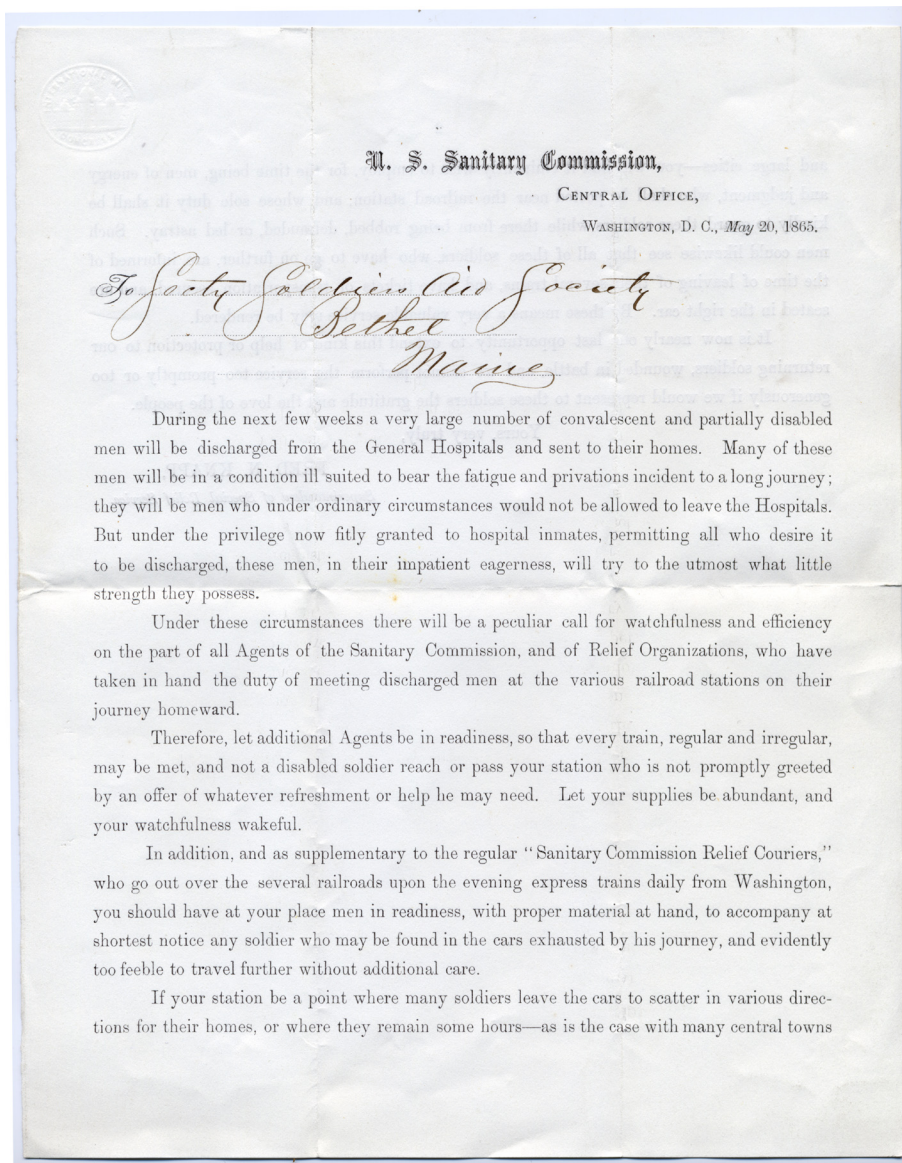 U. S. Sanitary Commission,
Central Office,
Washington, D. C., May 20, 1865.
To Secty Soldiers Aid Society
Bethel
Maine
During the next few weeks a very large number of convalescent and partially disabled
men will be discharged from the General Hospitals and sent to their homes. Many of these
men will be in a condition ill suited to bear the fatigue and privations incident to a long journey;
they will be men who under ordinary circumstances would not be allowed to leave the Hospitals.
But under the privilege now fitly granted to hospital inmates, permitting all who desire it
to be discharged, these men, in their impatient eagerness, will try to the utmost what little
strength they possess.
Under these circumstances there will be a peculiar call for watchfulness and efficiency
on the part of all Agents of the Sanitary Commission, and of Relief Organizations, who have
taken in hand the duty of meeting discharged men at the various railroad stations on their
journey homeward.
Therefore, let additional Agents be in readiness, so that every train, regular and irregular,
may be met, and not a disabled soldier reach or pass your station who is not promptly greeted
by an offer of whatever refreshment or help he may need. Let your supplies be abundant, and
your watchfulness wakeful.
In addition, and as supplementary to the regular "Sanitary Commission Relief Couriers,"
who go out over the several railroads upon the evening express trains daily from Washington,
you should have at your place men in readiness, with proper material at hand, to accompany at
shortest notice any soldier who may be found in the cars exhausted by his journey, and evidently
too feeble to travel further without additional care.
If your station be a point where many soldiers leave the cars to scatter in various direc-
tions for their homes, or where they remain some hours—as is the case with many central towns